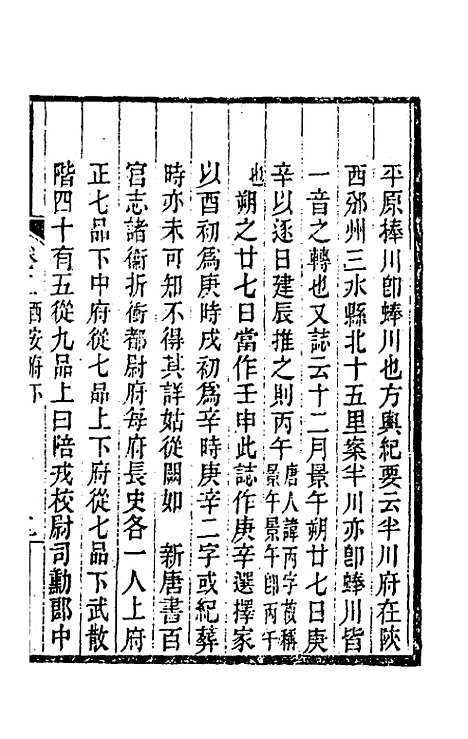 平原捧川卽蜯川也方輿紀要云半川府在陝
西邠州三水縣北十五里案半川亦卽蜯川皆
一音之轉也又誌云十二月景午朔廿七日庚
辛以逐日建辰推之則丙午唐人諱丙字故稱景午景午卽丙午
也朔之廿七日當作壬申此誌作庚辛選擇家
以酉初爲庚時戌初爲辛時庚辛二字或紀葬
時亦未可知不得其詳姑從闕如　新唐書百
官志諸衞折衝都尉府每府長史各一人上府
正七品下中府從七品上下府從七品下武散
階四十有五從九品上曰陪戎校尉司勳郎中
西安府下